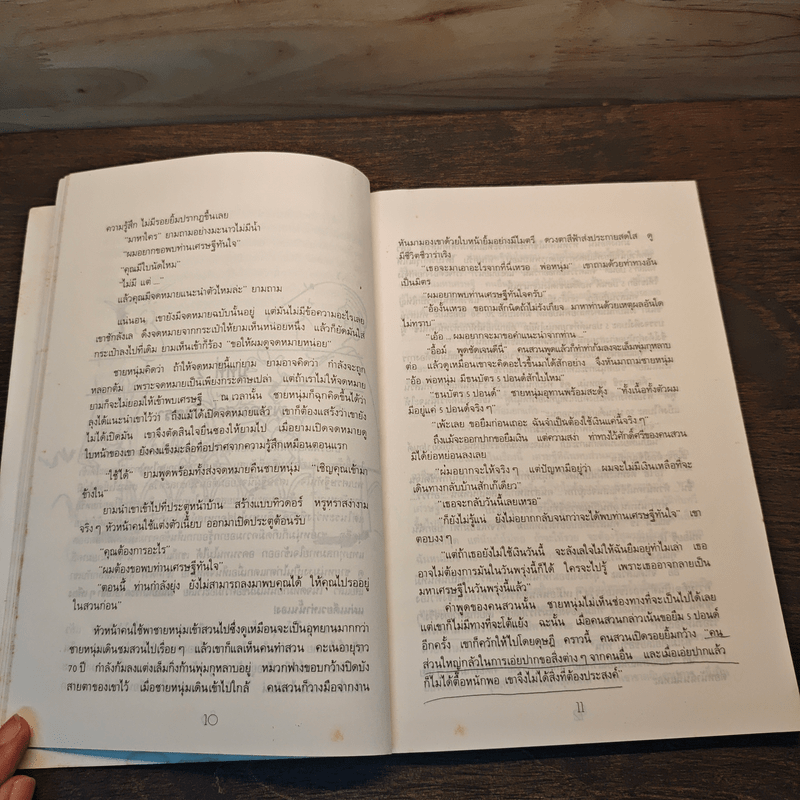 ความรู้สึก ไม่มีรอยยิ้มปรากฏขึ้นเลย
"มาหาใคร" ยามถามอย่างมะนาวไม่มีน้ำ
"ผมอยากขอพบท่านเศรษฐีทันใจ"
"คุณมีใบนัดไหม"
"ไม่มี แต่ ..."
แล้วคุณมีจดหมายแนะนำตัวไหมล่ะ" ยามถาม
แน่นอน เขายังมีจดหมายฉบับนั้นอยู่ แต่มันไม่มีข้อความอะไรเลย
เขาชักลังเล ดึงจดหมายจากกระเป๋าให้ยามเห็นหน่อยหนึ่ง แล้วก็ยัดมันใส่
กระเป๋าลงไปที่เดิม ยามเห็นเข้าก็ร้อง "ขอให้ผมดูจดหมายหน่อย"
ชายหนุ่มคิดว่า ถ้าให้จดหมายนี้แก่ยาม ยามอาจคิดว่า กำลังจะถูก
หลอกต้ม เพราะจดหมายเป็นเพียงกระดาษเปล่า แต่ถ้าเราไม่ให้จดหมาย
ยามก็จะไม่ยอมให้เข้าพบเศรษฐี ณ เวลานั้น ชายหนุ่มก็ฉุกคิดขึ้นได้ว่า
ลุงได้แนะนำเขาไว้ว่า ถึงแม้ได้เปิดจดหมายแล้ว เขาก็ต้องแสร้งว่าเขายัง
ไม่ได้เปิดมัน เขาจึงตัดสินใจยื่นซองให้ยามไป เมื่อยามเปิดจดหมายดู
ใบหน้าของเขา ยังคงแข็งมะลื่อทื่อปราศจากความรู้สึกเหมือนตอนแรก
"ใช้ได้" ยามพูดพร้อมทั้งส่งจดหมายคืนชายหนุ่ม "เชิญคุณเข้ามา
ข้างใน"
ยามนำเขาเข้าไปที่ประตูหน้าบ้าน สร้างแบบทิวดอร์ หรูหราสง่างาม
จริง ๆ หัวหน้าคนใช้แต่งตัวเนี้ยบ ออกมาเปิดประตูต้อนรับ
"คุณต้องการอะไร"
"ผมต้องขอพบท่านเศรษฐีทันใจ"
"ตอนนี้ ท่านกำลังยุ่ง ยังไม่สามารถลงมาพบคุณได้ ให้คุณไปรออยู่
ในสวนก่อน"
หัวหน้าคนใช้พาชายหนุ่มเข้าสวนไปซึ่งดูเหมือนจะเป็นอุทยานมากกว่า
ชายหนุ่มเดินชมสวนไปเรื่อย ๆ แล้วเขาก็แลเห็นคนทำสวน คะเนอายุราว
70 ปี กำลังก้มลงแต่งเล็มกิ่งก้านพุ่มกุหลาบอยู่ หมวกฟางขอบกว้างปิดบัง
สายตาของเขาไว้ เมื่อชายหนุ่มเดินเข้าไปใกล้ คนสวนก็วางมือจากงาน
10
หันมามองเขาด้วยใบหน้ายิ้มอย่างมีไมตรี ดวงตาสีฟ้าส่งประกายสดใส ดู
มีชีวิตชีวาร่าเริง
"เธอจะมาเอาอะไรจากที่นี่เหรอ พ่อหนุ่ม" เขาถามด้วยท่าทางอัน
เป็นมิตร
"ผมอยากพบท่านเศรษฐีทันใจครับ"
"อ้องั้นเหรอ ขอถามสักนิดถ้าไม่รังเกียจ มาหาท่านด้วยเหตุผลอันใด
ไม่ทราบ"
"เอื้อ ... ผมอยากจะมาขอคำแนะนำจากท่าน ..."
"อื้อม์ พูดชัดเจนดีนี่" คนสวนพูดแล้วก็ทำท่าก้มลงจะเล็มพุ่มกุหลาบ
ต่อ แล้วดูเหมือนเขาจะคิดอะไรขึ้นมาได้สักอย่าง จึงหันมาถามชายหนุ่ม
"อ้อ พ่อหนุ่ม มีธนบัตร 5 ปอนด์สักใบไหม"
"ธนบัตร 5 ปอนด์" ชายหนุ่มอุทานพร้อมสะดุ้ง "ทั้งเนื้อทั้งตัวผม
มีอยู่แค่ 5 ปอนด์จริง ๆ"
"เพ้ะเลย ขอยืมก่อนเถอะ ฉันจำเป็นต้องใช้เงินแค่นี้จริงๆ"
ถึงแม้จะออกปากขอยืมเงิน แต่ความสง่า ท่าทางไว้ศักดิ์ศรีของคนสวน
มิได้ย่อหย่อนลงเลย
"ผมอยากจะให้จริง ๆ แต่ปัญหามีอยู่ว่า ผมจะไม่มีเงินเหลือที่จะ
เดินทางกลับบ้านสักกีเดียว"
"เธอจะกลับวันนี้เลยเหรอ"
"ก็ยังไม่รู้แน่ ยังไม่อยากกลับจนกว่าจะได้พบท่านเศรษฐีทันใจ" เขา
ตอบงง ๆ
"แต่ถ้าเธอยังไม่ใช้เงินวันนี้ จะลังเลใจไม่ให้ฉันยืมอยู่ทำไมเล่า เธอ
อาจไม่ต้องการมันในวันพรุ่งนี้ก็ได้ ใครจะไปรู้ เพราะเธออาจกลายเป็น
มหาเศรษฐีในวันพรุ่งนี้แล้ว"
คำพูดของคนสวนนั้น ชายหนุ่มไม่เห็นช่องทางที่จะเป็นไปได้เลย
แต่เขาก็ไม่มีทางที่จะโต้แย้ง ฉะนั้น เมื่อคนสวนกล่าวเน้นขอยืม 5 ปอนด์
อีกครั้ง เขาก็ควักให้ไปโดยดุษฎี คราวนี้ คนสวนเปิดรอยยิ้มกว้าง "คน
ส่วนใหญ่กลัวในการเอ่ยปากขอสิ่งต่าง ๆ จากคนอื่น และเมื่อเอ่ยปากแล้ว
ก็ไม่ได้ตื้อหนักพอ เขาจึงไม่ได้สิ่งที่ต้องประสงค์"
11